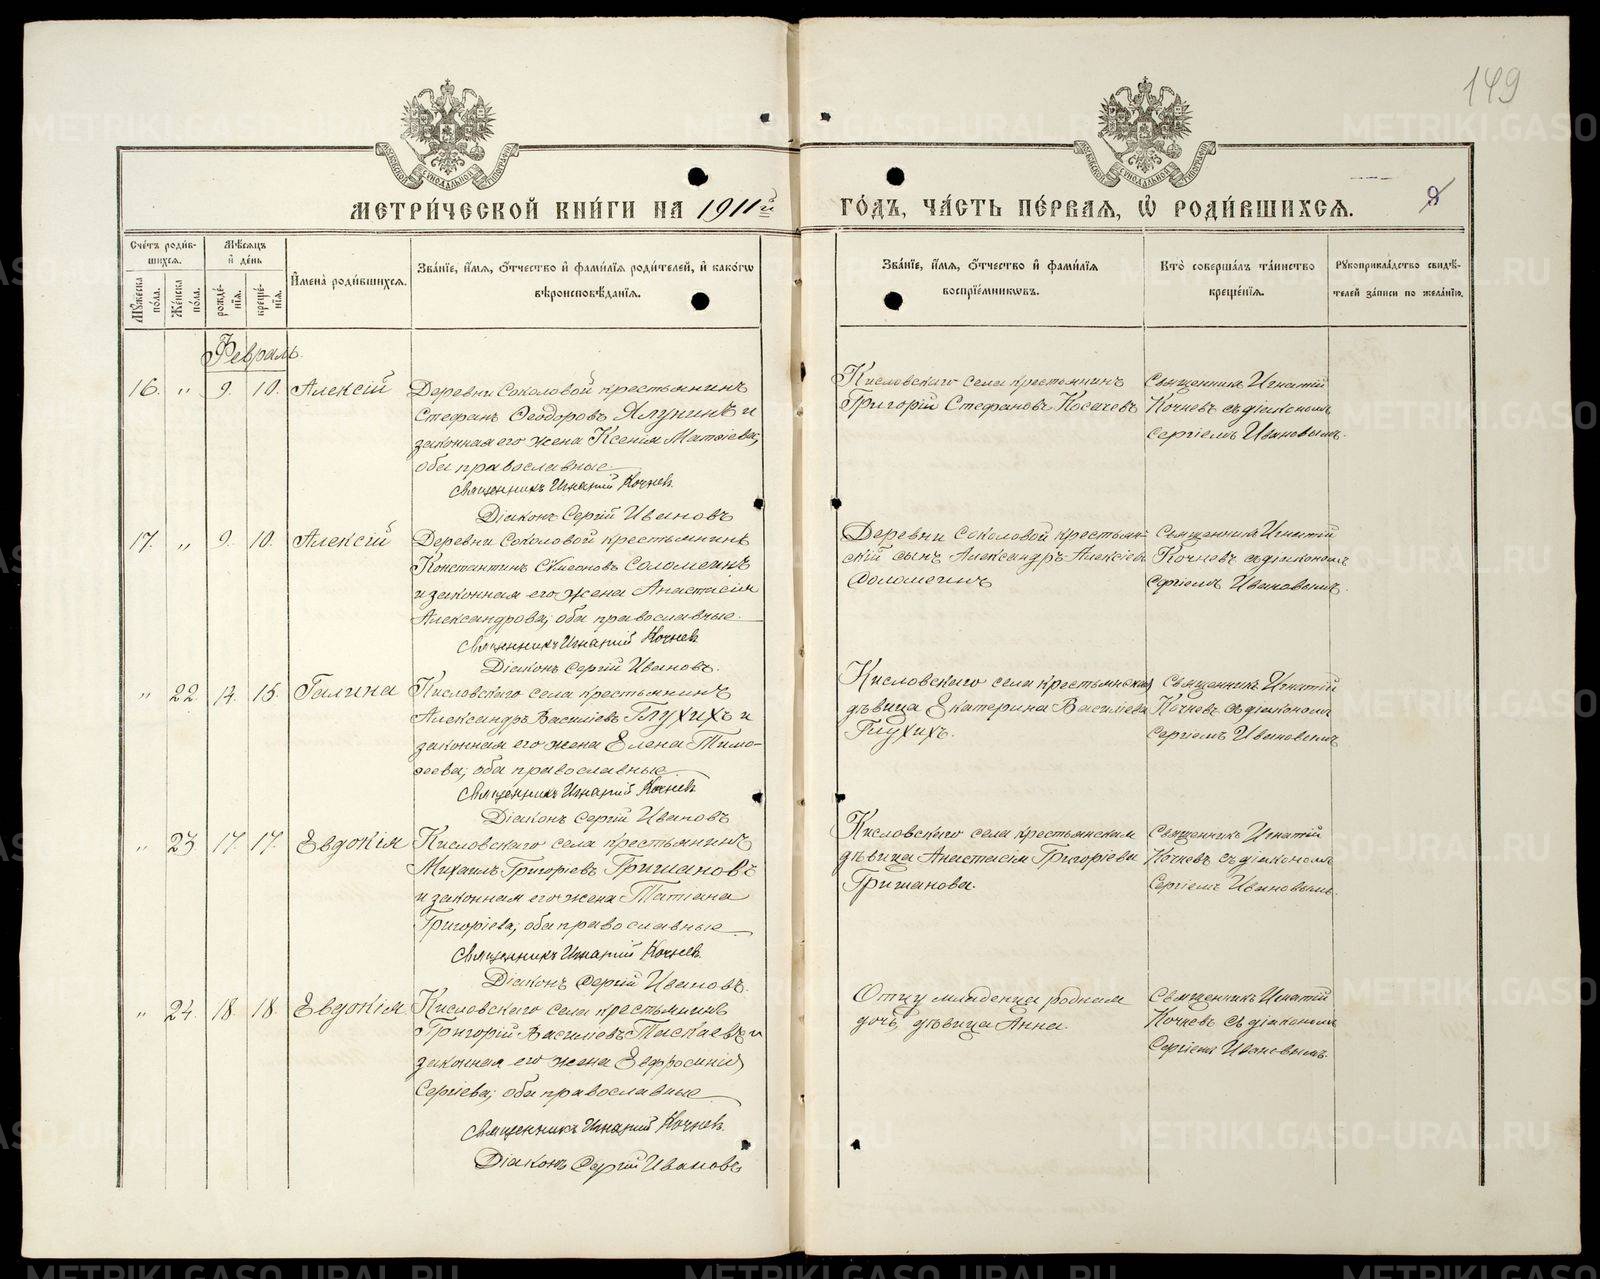 149
МЕТРИ́ЧЕСКОЙ КНИ́ГИ НА 1911й ГО́ДЪ, ЧА́СТЬ ПЕ́РВАЯ, Ѡ РОДИ́ВШИХСЯ.
Сче́тъ роди́вшихся.
Мѹ́жеска по́ла.
Же́нска по́ла.
Мѣ́сяцъ и де́нь
рожде́нїя.
креще́нїя.
Имена̀ роди́вшихся.
Зва́нїе, и́мя, о́тчество и фами́лїя роди́телей, и како́гѡ
вѣроисповѣ́данїя.
Зва́нїе, и́мя, о́тчество и фами́лїя
воспрїе́мникѡвъ.
Кто̀ соверша́лъ та́инство
креще́нїя.
Рѹкоприкла́дство свидѣ́-
телей за́писи по жела́нїю.
Февраль.
16. " 9. 10. Алексій
Деревни Соколовой крестьянинъ
Стефанъ Ѳеодоровъ Ялунинъ и
законная его жена Ксенія Матѳіева;
оба православные.
Священникъ Игнатій Кочневъ
Діаконъ Сергій Ивановъ
Кисловскаго села крестьянинъ
Григорій Стефановъ Косачевъ
Священникъ Игнатій
Кочневъ съ діакономъ
Сергіемъ Ивановымъ.
17. " 9. 10. Алексій
Деревни Соколовой крестьянинъ
Константинъ Симеоновъ Соломеинъ
и законная его жена Анастасія
Александрова; оба православные.
Священникъ Игнатій Кочневъ
Діаконъ Сергій Ивановъ.
Деревни Соколовой крестьян-
скій сынъ Александръ Алексіевъ
Соломеинъ
Священникъ Игнатій
Кочневъ съ діакономъ
Сергіемъ Ивановымъ.
" 22. 14. 15. Галина
Кисловскаго села крестьянинъ
Александръ Василіевъ Глухихъ и
законная его жена Елена Тимо-
ѳеева; оба православные
Священникъ Игнатій Кочневъ
Діаконъ Сергій Ивановъ
Кисловскаго села крестьянская
дѣвица Екатерина Василіева
Глухихъ.
Священникъ Игнатій
Кочневъ съ діакономъ
Сергіемъ Ивановымъ
" 23. 17. 17. Евдокія
Кисловскаго села крестьянинъ
Михаилъ Григоріевъ Гришановъ
и законная его жена Татіана
Григоріева; оба православные
Священникъ Игнатій Кочневъ
Діаконъ Сергій Ивановъ.
Кисловскаго села крестьянская
дѣвица Анастасія Григоріева
Гришанова.
Священникъ Игнатій
Кочневъ съ діакономъ
Сергіемъ Ивановымъ.
" 24. 18. 18. Евдокія
Кисловскаго села крестьянинъ
Григорій Василіевъ Таскаевъ и
законная его жена Евфросинія
Сергіева; оба православные
Священникъ Игнатій Кочневъ
Діаконъ Сергій Ивановъ
Отцу младенца родная
дочь, дѣвица Анна.
Священникъ Игнатій
Кочневъ съ діакономъ
Сергіемъ Ивановымъ.
METRIKI.GASO-URAL.RU